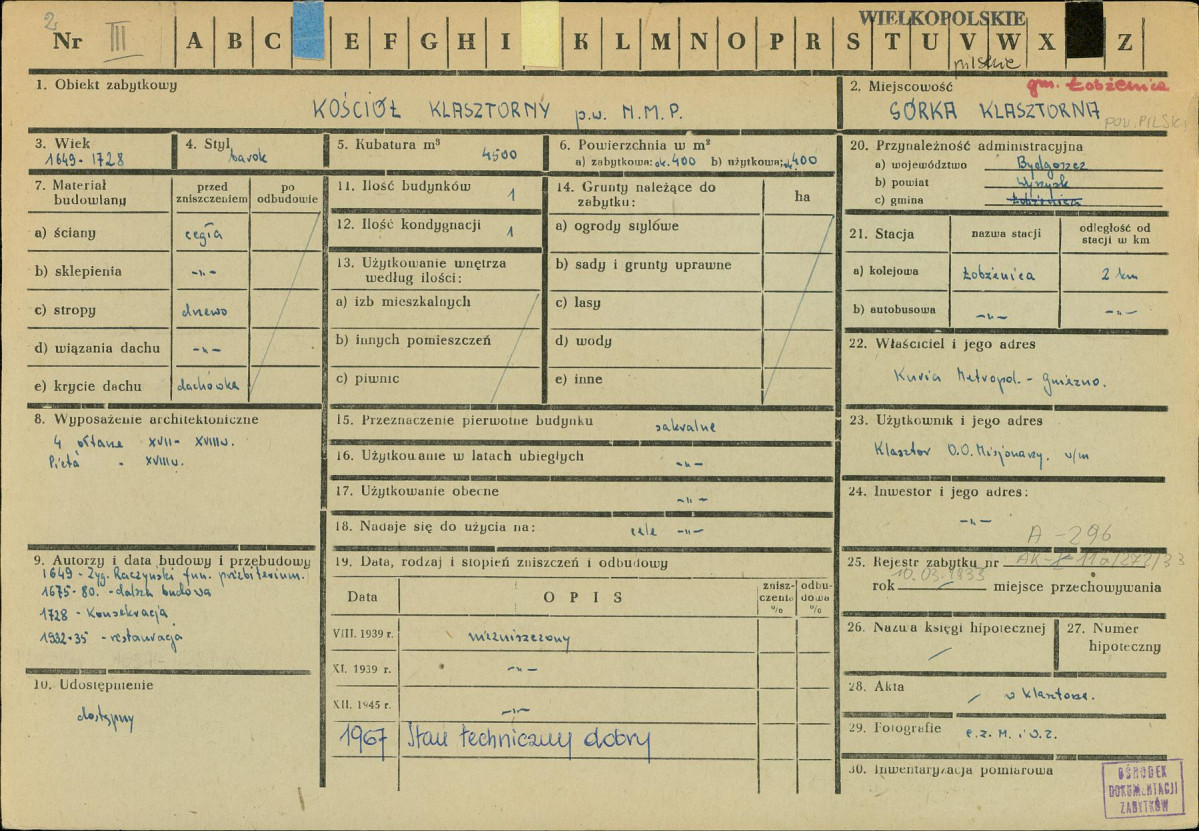 2.
Nr III A B C E F G H I K L M N O P R S T U V W X Z
WIELKOPOLSKIE
pilskie
1. Obiekt zabytkowy
KOŚCIÓŁ KLASZTORNY p.w. N.M.P.
2. Miejscowość
gm. Łobżenica
GÓRKA KLASZTORNA
pow. PILSKI
3. Wiek
1649 - 1728
4. Styl barok
5. Kubatura m³ 4500
6. Powierzchnia w m²
a) zabytkowa: ok. 400 b) użytkowa: ok. 400
7. Materiał budowlany
przed zniszczeniem
po odbudowie
a) ściany cegła
b) sklepienia -„-
c) stropy drzewo
d) wiązania dachu -„-
e) krycie dachu dachówka
8. Wyposażenie architektoniczne
4 ołtarze XVII - XVIII w.
Pietà - XVIII w.
9. Autorzy i data budowy i przebudowy
1649 - Zyg. Raczyński fun. prezbiterium.
1675-80. - dalsza budowa
1728 - Konsekracja
1932-35 - restauracja
10. Udostępnienie
dostępny
11. Ilość budynków 1
12. Ilość kondygnacji 1
13. Użytkowanie wnętrza według ilości:
a) izb mieszkalnych
b) innych pomieszczeń
c) piwnic
14. Grunty należące do zabytku:
ha
a) ogrody stylowe
b) sady i grunty uprawne
c) lasy
d) wody
e) inne
15. Przeznaczenie pierwotne budynku sakralne
16. Użytkowanie w latach ubiegłych -„-
17. Użytkowanie obecne -„-
18. Nadaje się do użycia na: cele -„-
19. Data, rodzaj i stopień zniszczeń i odbudowy
Data OPIS zniszczenia % odbudowa %
VIII. 1939 r. niezniszczony
XI. 1939 r. -„-
XII. 1945 r. -„-
1967 Stan techniczny dobry
20. Przynależność administracyjna
a) województwo Bydgoszcz
b) powiat Wyrzysk
c) gmina Łobżenica
21. Stacja
nazwa stacji
odległość od stacji w km
a) kolejowa Łobżenica 2 km
b) autobusowa -„- -„-
22. Właściciel i jego adres
Kuria Metropol. - Gniezno.
23. Użytkownik i jego adres
Klasztor O.O. Misjonarzy. w/m
24. Inwestor i jego adres:
-„-
A-296
25. Rejestr zabytku nr AK-I 11a/272/33
10.03.1933
rok miejsce przechowywania
26. Nazwa księgi hipotecznej
27. Numer hipoteczny
28. Akta w klasztorze.
29. Fotografie
30. Inwentaryzacja pomiarowa
OŚRODEK
DOKUMENTACJI
ZABYTKÓW